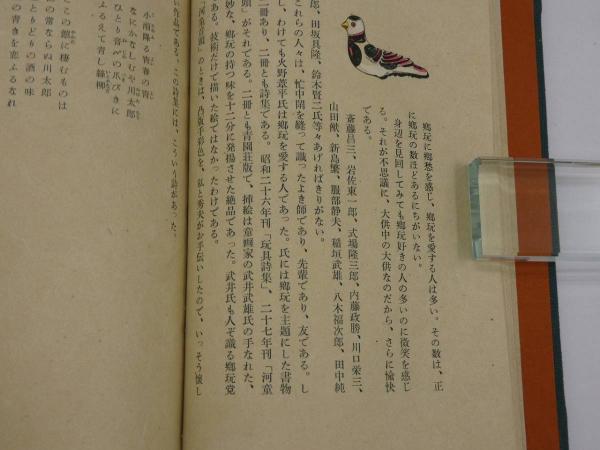 郷玩に郷愁を感じ、郷玩を愛する人は多い。その数は、正
に郷玩の数ほどあるにちがいない。
身辺を見回してみても郷玩好きの人の多いのに微笑を感じ
る。それが不思議に、大供中の大供なのだから、さらに愉快
である。
斎藤昌三、岩佐東一郎、式場隆三郎、内藤政勝、川口栄三、
山田猷、新島繁、服部静夫、稲垣武雄、八木福次郎、田中純
郎、田坂具隆、鈴木賢二氏等々あげればきりがない。
これらの人々は、忙中閑を縫って識ったよき師であり、先輩であり、友である。し
し、わけても火野葦平氏は郷玩を愛する人であった。氏には郷玩を主題にした書物
二冊あり、二冊とも詩集である。昭和二十六年刊「玩具詩集」、二十七年刊「河童
頭」がそれである。二冊とも青園荘版で、挿絵は童画家の武井武雄氏の手なれた、
妙な、郷玩の持つ味を十二分に発揚させた絶品であった。武井氏も人ぞ識る郷玩党
である。技術だけで描いた絵ではなかったわけである。
「河童音頭」のときは、凸版手彩色を、私と秀夫がお手伝いしたので、いっそう懐し
い作品である。この詩集には、こういう詩があった。
小雨降る青春の宵
なにかなしむや川太郎
ひとり音への爪びきに
ふるえて青し絲柳
ここの館に棲むものは
の常ならぬ川太郎
とりどりの酒の味
の青きを恋ふるなれ